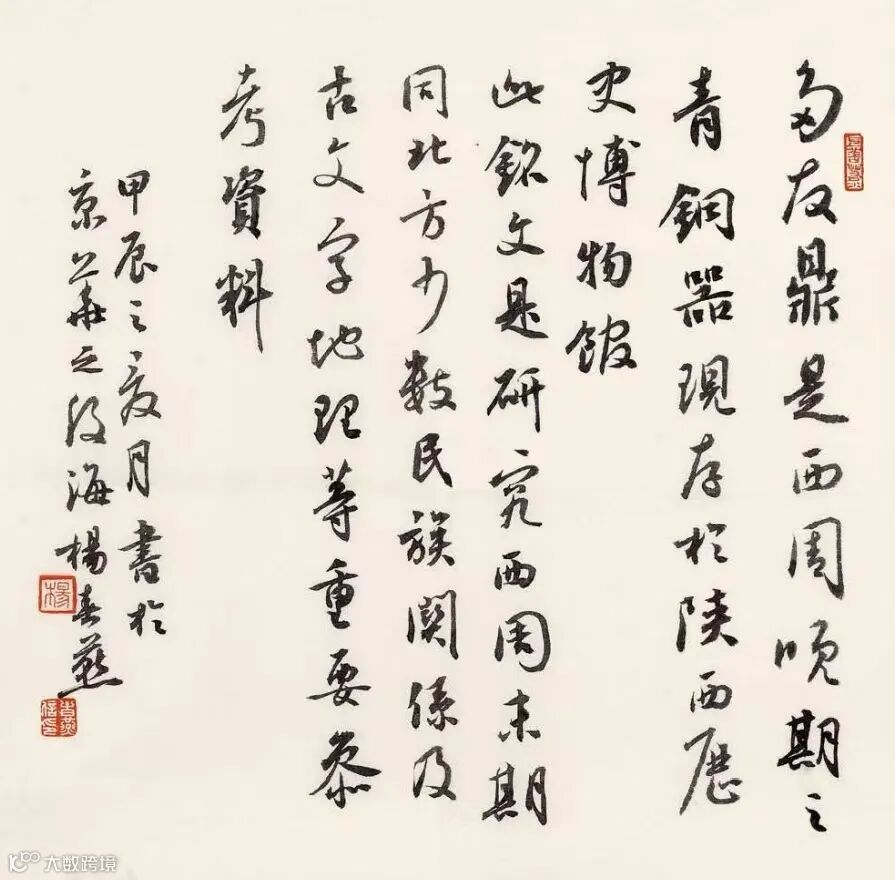 多友鼎是西周晚期之
青銅器現存於陝西歷
史博物館
此銘文是研究西周末期
同北方少數民族関係及
古文字地理等重要参
考資料
甲辰之夏月書於
京華之後海楊春燕
楊
大数跨境